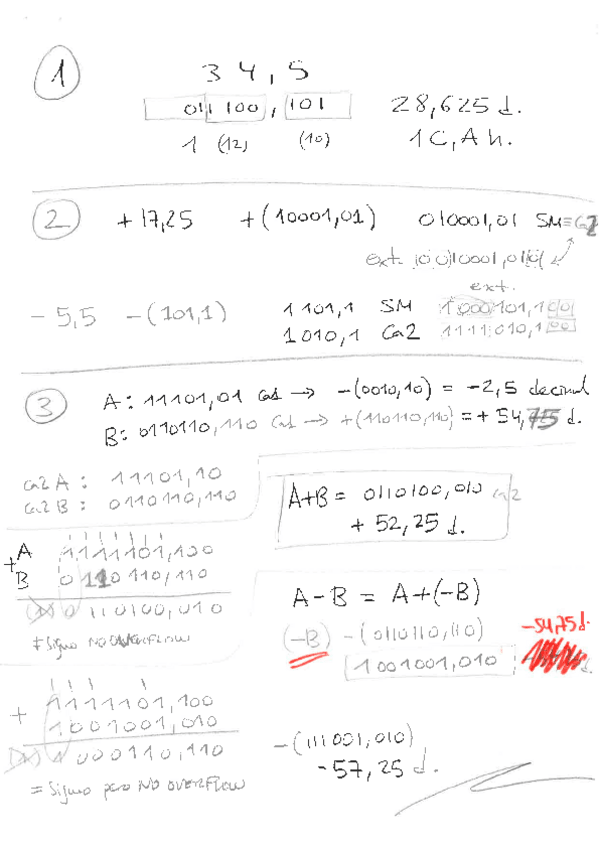 1
3 4 , 5
011 100 , 101 28,625 d.
1 (12) (10) 1C,A h.
2 +17,25 +(10001,01) 010001,01 SM≡Ca2
ext.
ext.
- 5,5 -(101,1) 1101,1 SM
1010,1 Ca2 1111010,100
3 A: 11101,01 Ca1 → -(0010,10) = -2,5 decimal
B: 0110110,110 Ca1 → +(110110,110) = + 54,75 d.
ca2 A : 11101,10
ca2 B : 0110110,110
A+B = 0110100,010 ca2
+ 52,25 d.
+ A 1111101,100
B 0110110,110
(1) 0110100,010
≠ Signo NO OVERFLOW
A-B = A+(-B)
(-B) -(0110110,110) -54,75 d.
1001001,010
1111101,100
+ 1001001,010
(1) 1000110,110
= Signo pero NO OVERFLOW
-(111001,010)
-57,25 d.